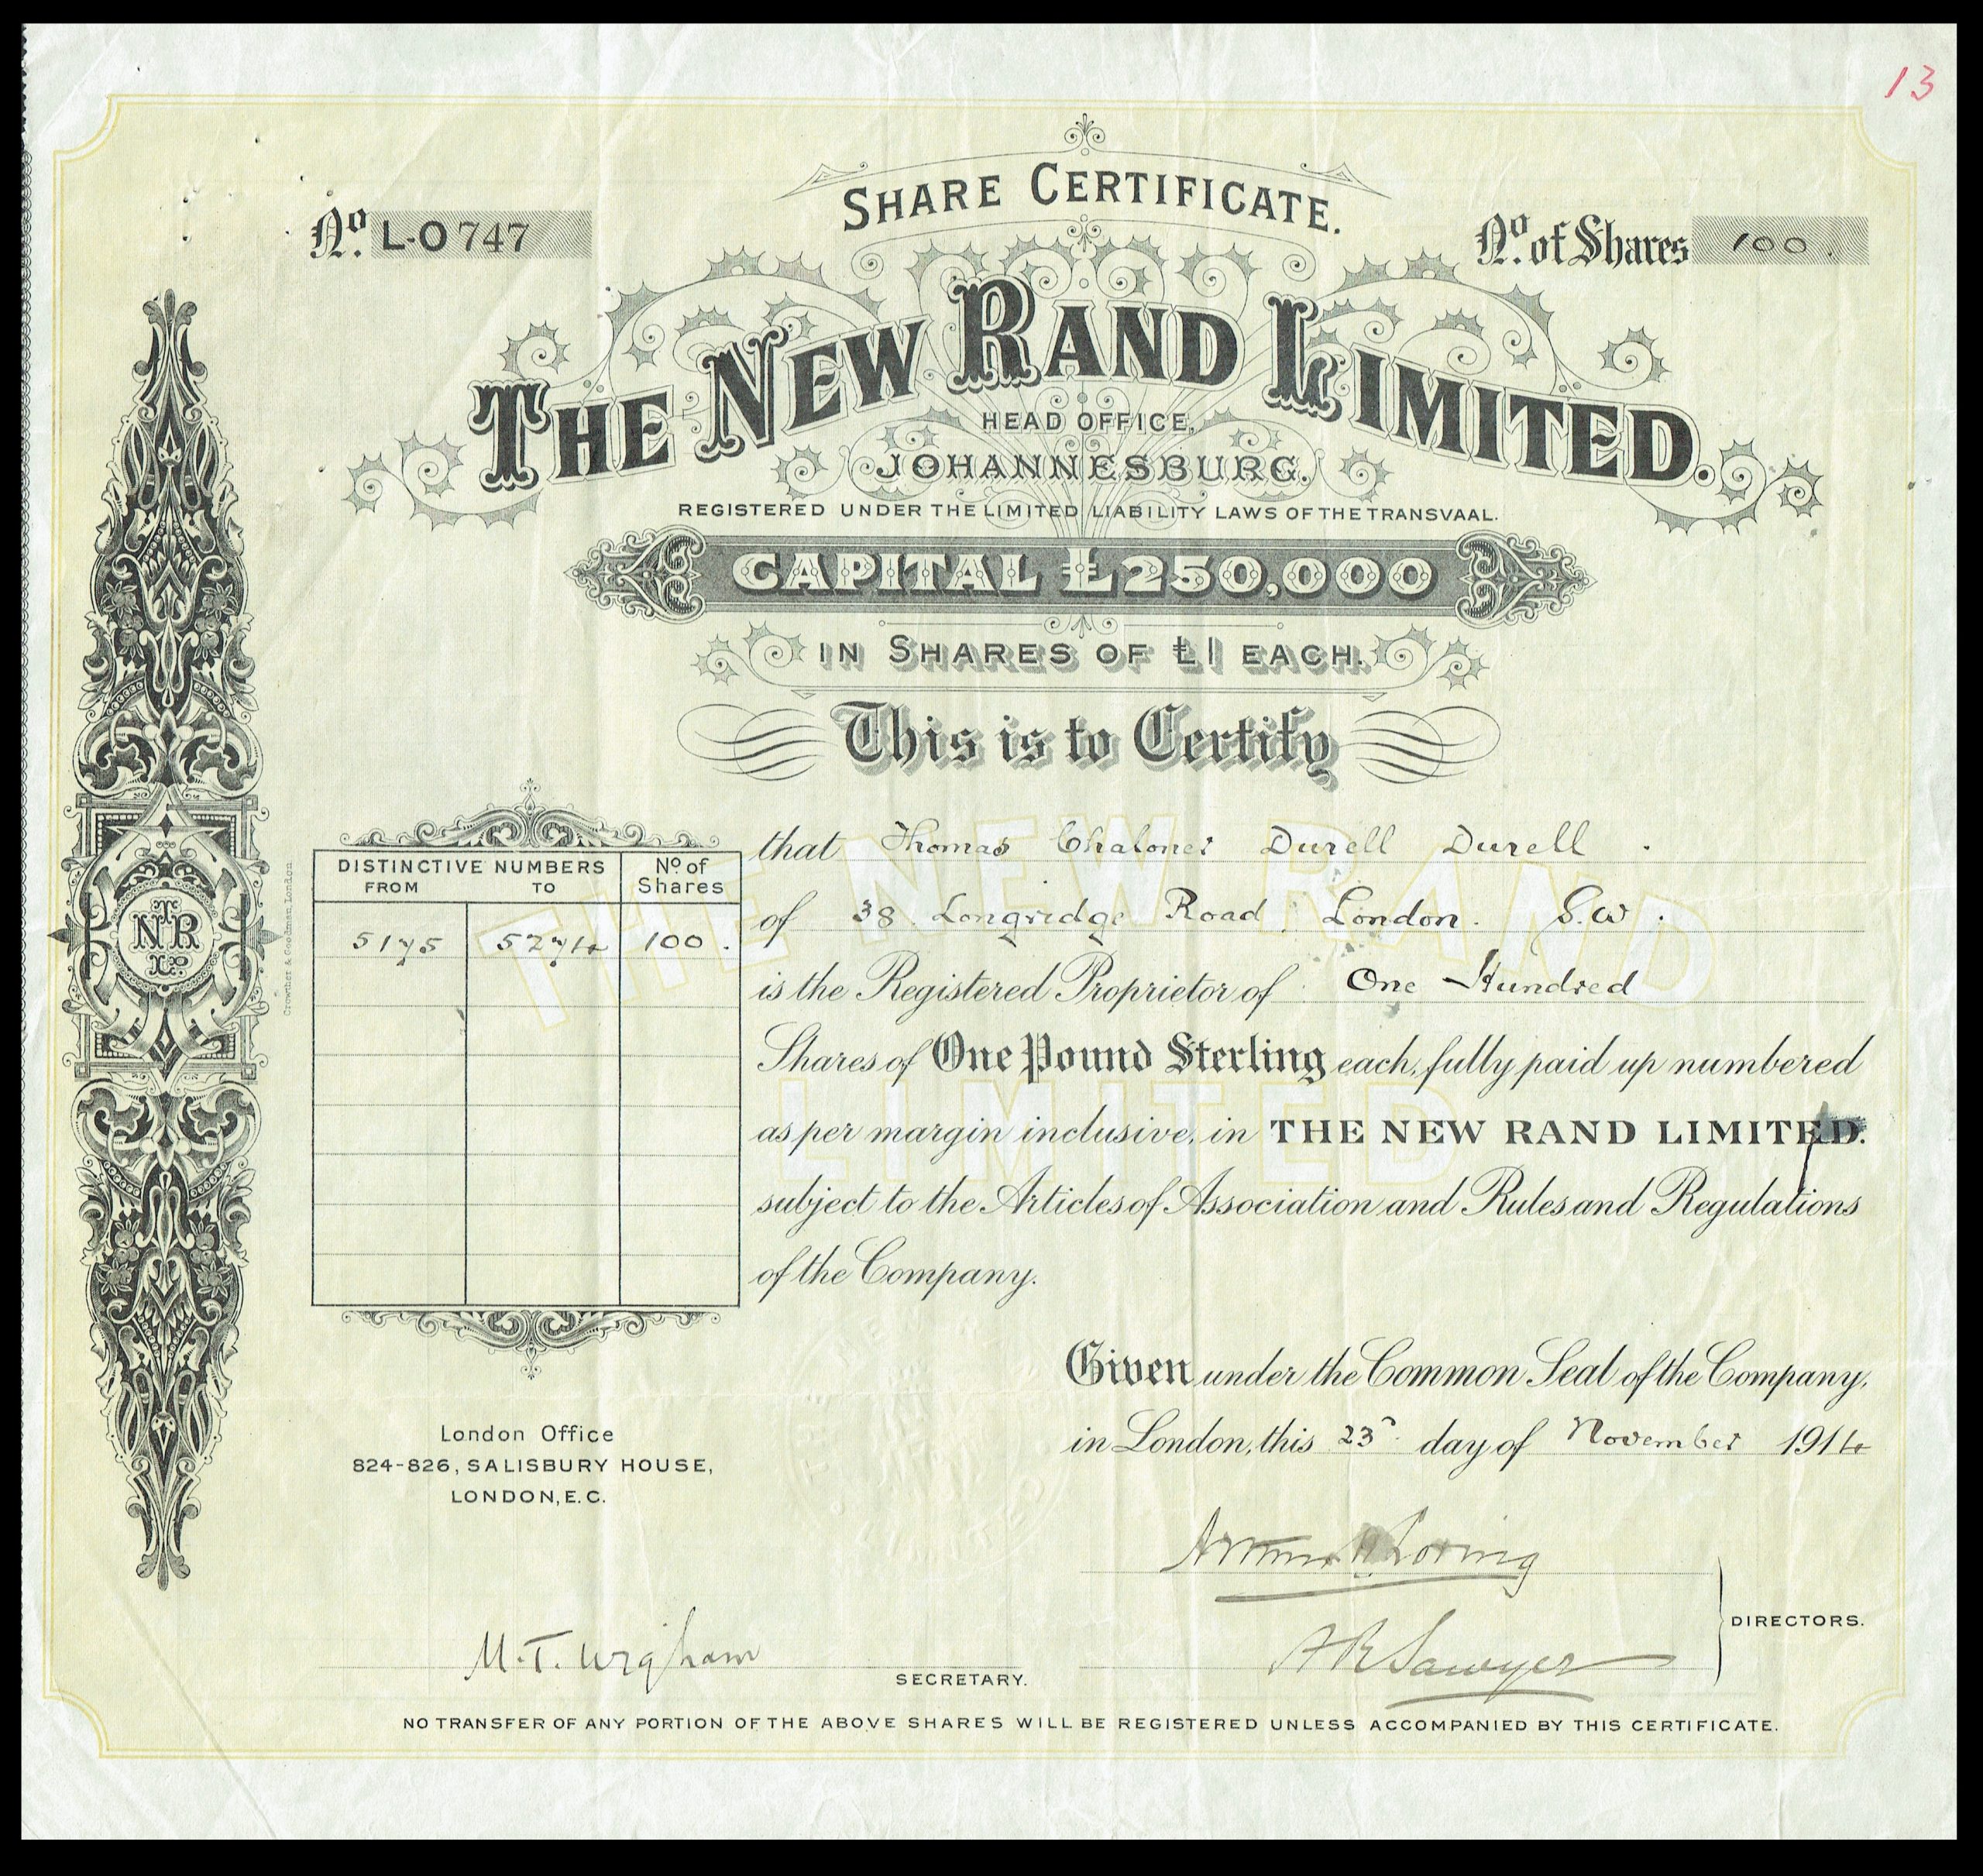 13
SHARE CERTIFICATE.
No. L-O 747
No. of Shares 100.
THE NEW RAND LIMITED.
HEAD OFFICE,
JOHANNESBURG.
REGISTERED UNDER THE LIMITED LIABILITY LAWS OF THE TRANSVAAL.
CAPITAL £250,000
IN SHARES OF £1 EACH.
This is to Certify
that Thomas Chaloner Durell Durell.
of 38 Longridge Road London. S.W.
is the Registered Proprietor of One Hundred
Shares of One Pound Sterling each, fully paid up numbered
as per margin inclusive, in THE NEW RAND LIMITED.
subject to the Articles of Association and Rules and Regulations
of the Company.
DISTINCTIVE NUMBERS No. of
FROM TO Shares
5175 5274 100.
THE NEW RAND
LIMITED
T
NR
LD
Crowther & Goodman, London
Given under the Common Seal of the Company,
in London, this 23 day of November 1914
London Office
824-826, SALISBURY HOUSE,
LONDON, E.C.
Loring
A R Sawyer
DIRECTORS.
M. T. Wrigham
SECRETARY.
NO TRANSFER OF ANY PORTION OF THE ABOVE SHARES WILL BE REGISTERED UNLESS ACCOMPANIED BY THIS CERTIFICATE.